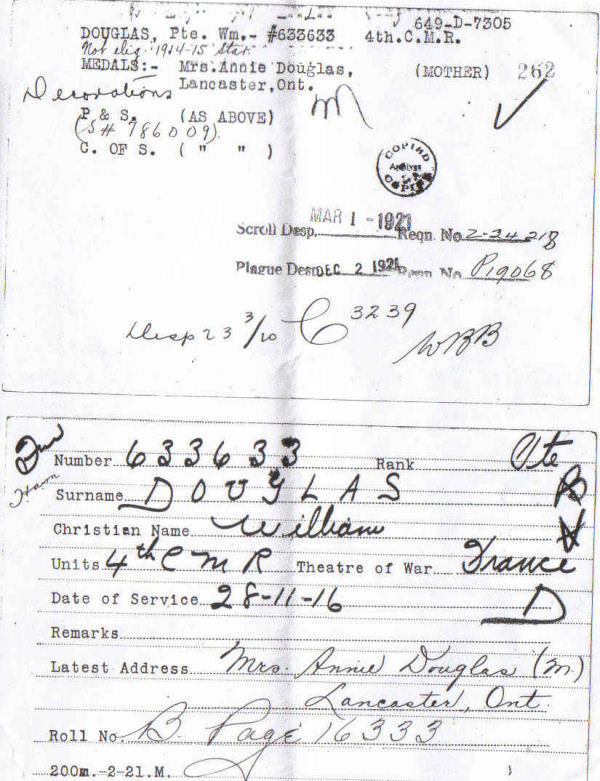 649-D-7305
DOUGLAS, Pte. Wm.- #633633 4th.C.M.R.
Not elig. 1914-15 Star.
MEDALS:- Mrs.Annie Douglas, (MOTHER) 262
Decorations Lancaster,Ont. m
P & S. (AS ABOVE)
(S# 786009)
C. OF S. ( " " )
COPIED
Archives
COPIED
Scroll Desp. MAR 1 - 1921 Reqn. No. Z-34218
Plaque Desp. DEC 2 1921 Reqn No. P19068
Desp 23 3/20 C 3239
WBB
Number 633633 Rank Pte
Surname DOUGLAS B
Christian Name William
Units 4th C M R Theatre of War France
Date of Service 28-11-16 D
Remarks
Latest Address Mrs. Annie Douglas (m.)
Lancaster, Ont.
Roll No. B. Page 16333
200m.-2-21.M.